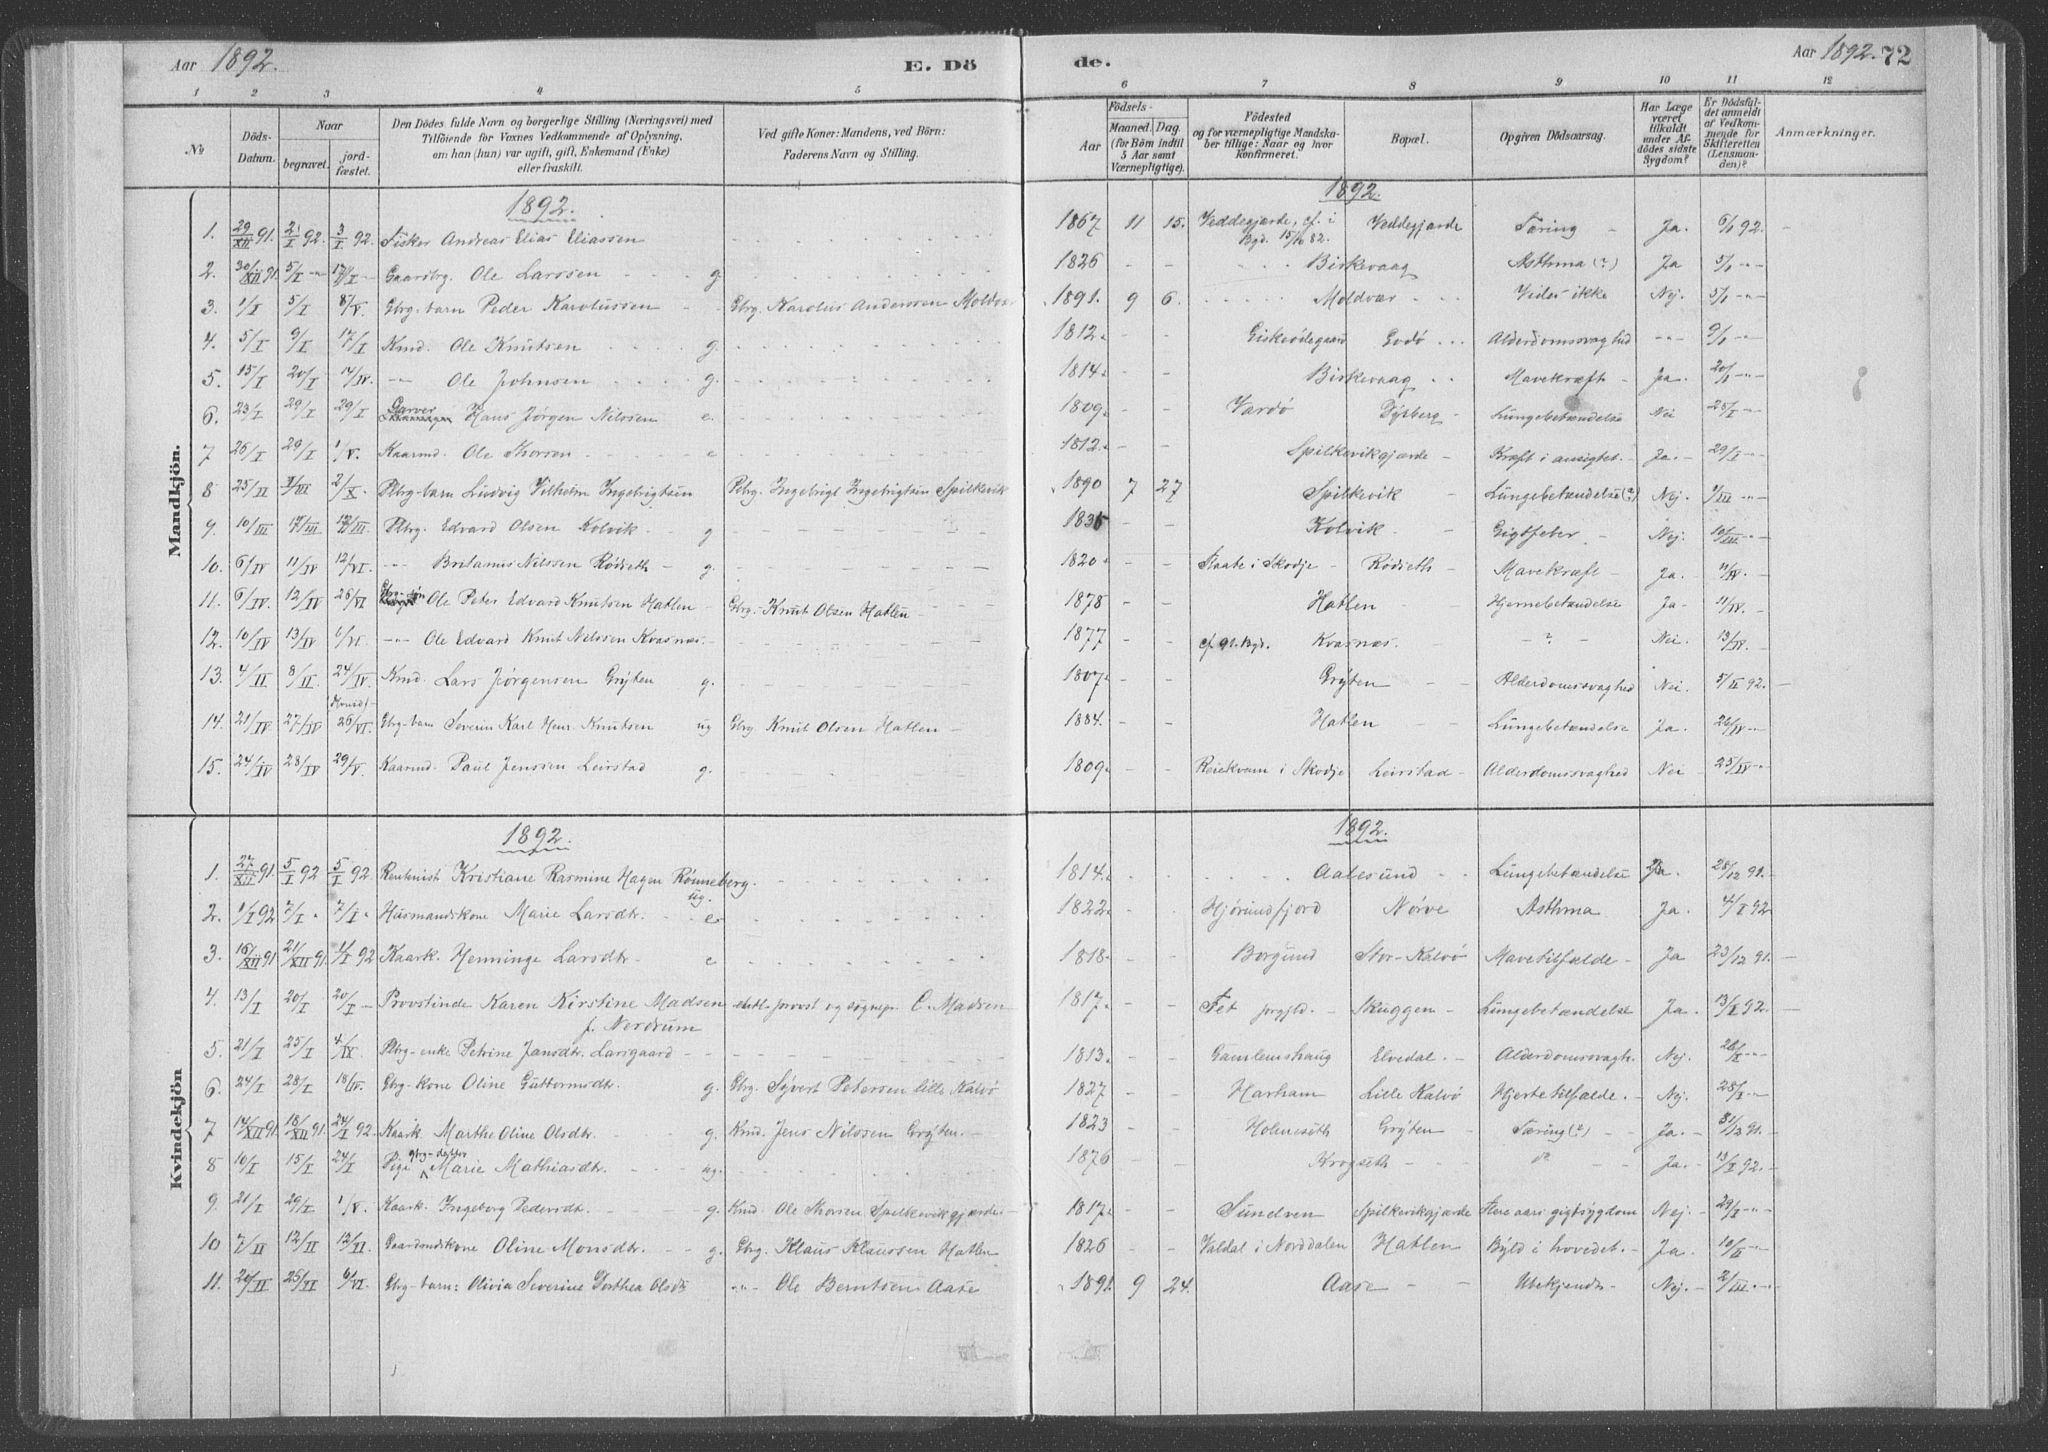 Aar 1892. E. Dö de. Aar 1892. 72
1 2 3 4 5 6 7 8 9 10 11 12
№ Döds-Datum. Naar begravet. jordfæstet. Den Dödes fulde Navn og borgerlige Stilling (Næringsvei) med Tilföiende for Voxnes Vedkommende af Oplysning, om han (hun) var ugift, gift, Enkemand (Enke) eller fraskilt. Ved gifte Koner: Mandens, ved Börn: Faderens Navn og Stilling. Födsels- Aar Maaned. Dag. (for Börn indtil 5 Aar samt Værnepligtige). Födested og for værnepligtige Mandskaber tillige: Naar og hvor konfirmeret. Bopæl. Opgiven Dödsaarsag. Har Læge været tilkaldt under Afdödes sidste Sygdom? Er Dödsfaldet anmeldt af Vedkommende for Skifteretten (Lensmanden)? Anmærkninger.
Mandkjön.
1892. 1892.
1. 29/XII 91. 2/I 92. 3/I 92. Fisker Andreas Elias Eliassen 1867 11 15. Veddegjærde, cf. i Bgd. 15/10 82. Veddegjærde Tæring - Ja. 6/1 92. -
2. 30/XII 91. 5/I -"- 17/I - Gaardbg. Ole Larssen g 1826 - - Birkevaag Asthma (?) Ja 5/1 -"-
3. 1/I 5/I 8/V. Gbrg-barn Peder Karolussen - Gbrg. Karolus Anderssen Moldvær 1891. 9 6. Moldvær Vides ikke Nej. 5/1 -"-
4. 5/I 9/I 17/I Kmd. Ole Knutsen g. 1812. - - Giskeödegaard Godø Alderdomssvaghed -"- 9/1 -"-
5. 15/I 20/I 14/IV. -"- Ole Johnsen g. 1814. - - Birkevaag Mavekræft - Ja. 20/1 -"-
6. 23/I 29/I 29/I Garver Hans Jörgen Nilssen e. 1809. - - Vardø Dysberg - Lungebetændelse Nei 25/I -"-
7 26/I 29/I 1/V. Kaarmd. Ole Thorsen e 1812. - - Spilkevikgjærde - Kræft i ansigtet. Ja. - 29/I -"-
8 25/II 7/VI 2/X. Plbrg-barn Ludvig Vilhelm Ingebrigtsen Plbrg. Ingebrigt Ingebrigtsen Spilkevik 1890 7 27 Spilkevik - Lungebetændelse (?) Nej. 1/III -"-
9. 10/III 17/III 17/III. Plbrg. Edvard Olsen Kolvik - g 1835 - - Kolvik - Gigtfeber - Nej. 12/III -"-
10. 6/IV 11/IV 12/VI. -"- Britanus Nilssen Rödseth - g. 1820. - - Staate i Skodje Rödseth - Mavekræft - Ja. - 11/IV. -"-
11. 6/IV. 12/IV 26/VI Gbrg-sön Ole Peter Edvard Knutsen Hatlen - Gbrg. Knut Olsen Hatlen 1878 - - Hatlen - Hjernebetændelse Ja - 11/IV. -"-
12. 10/IV 13/IV 6/VI. -"- Ole Edvard Knut Nilssen Kvasnæs. - 1877 - - cf. 91. Bgd. Kvasnæs. - ? - Nei. 13/IV. -"-
13. 4/II 8/II. 24/IV. Kmd. Lars Jörgensen Gryten g. 1807. - - Gryten - Alderdomssvaghed Nei - 5/II 92. -
14. 21/IV 27/IV 26/VI. Gbrg-barn Severin Karl Henr. Knutsen ug Gbrg Knut Olsen Hatlen - 1884. - - Hatlen - Lungebetændelse Ja. 26/IV -"-
15. 24/IV 28/IV 29/V. Kaarmd. Paul Jenssen Leirstad g. 1809. - - Reiekvam i Skodje Leirstad - Alderdomssvaghed Nei 25/IV -"-
Kvindekjön
1892. 1892.
1. 27/XII 91. 5/I 92 5/I 92. Rentenist Kristiane Rasmine Hagen Rønneberg. ug. 1814. Aalesund Lungebetændelse Ja 28/12 91. -
2. 1/I 92 7/I - 7/I - Husmandskone Marie Larsdtr. - e 1822. - - Hjörundfjord Nörve Asthma Ja. 4/I 92 -
3. 16/XII 91 21/XII 91. 1/I 92 Kaark. Henninge Larsdtr. e 1818. - - Borgund Stor-Kalvö Mavetilfælde - Ja 23/12 91. -
4. 13/I 20/I 20/I - Provstinde Karen Kirstine Madsen f. Nordrum provst og sognepr. C. Madsen 1817. - - Fet prgjld. - Skuggen - Lungebetændelse Ja. - 13/I 92. -
5. 21/I 25/I 4/IX. Plbrg-enke Petrine Jansdtr. Larsgaard - 1813. - Gamlemshaug Elvedal. - Alderdomssvagh. Nej. 26/I -"-
6. 24/I 28/I 18/IV. Gbrg-kone Oline Guttormsdtr. g. Gbrg. Syvert Petersen lille Kalvö 1827 - - Harham Lille Kalvö Hjertetilfælde. - Nej. 28/I -"-
7 14/XII 91. 18/XII 91. 24/I 92. Kaark. Marthe Oline Olsdtr. g. Kmd. Jens Nilssen Gryten. - 1823 - - Holmeseth Gryten - Tæring (?) - Ja. - 31/12 91. -
8 10/I 15/I 24/I Pige gbrg-datter Marie Mathiasdtr. ug. 1876 - - Krogseth - do - Ja. - 13/I 92. -
9. 21/I 29/I 1/V. Kaark. Ingeborg Pedersdtr. g. Kmd. Ole Thorsen Spilkevikgjærde. - 1817. - - Sundven Spilkevikgjærde Flere aars gigtsygdom Nej. - 29/I -"-
10 7/II 12/II 12/II. Gaardmdskone Oline Monsdtr. - g. Gbrg. Klaus Klaussen Hatlen 1826 - - Valdal i Norddalen Hatlen - Byld i hovedet. - Ja. 10/II -"-
11. 20/II 25/II 6/VI. Gbrg-barn: Olivia Severine Dorthea Olsdtr. -"- Ole Berntsen Aase 1891. 9 24. Aase - - Ubekjendt - Nej. - 2/III -"-